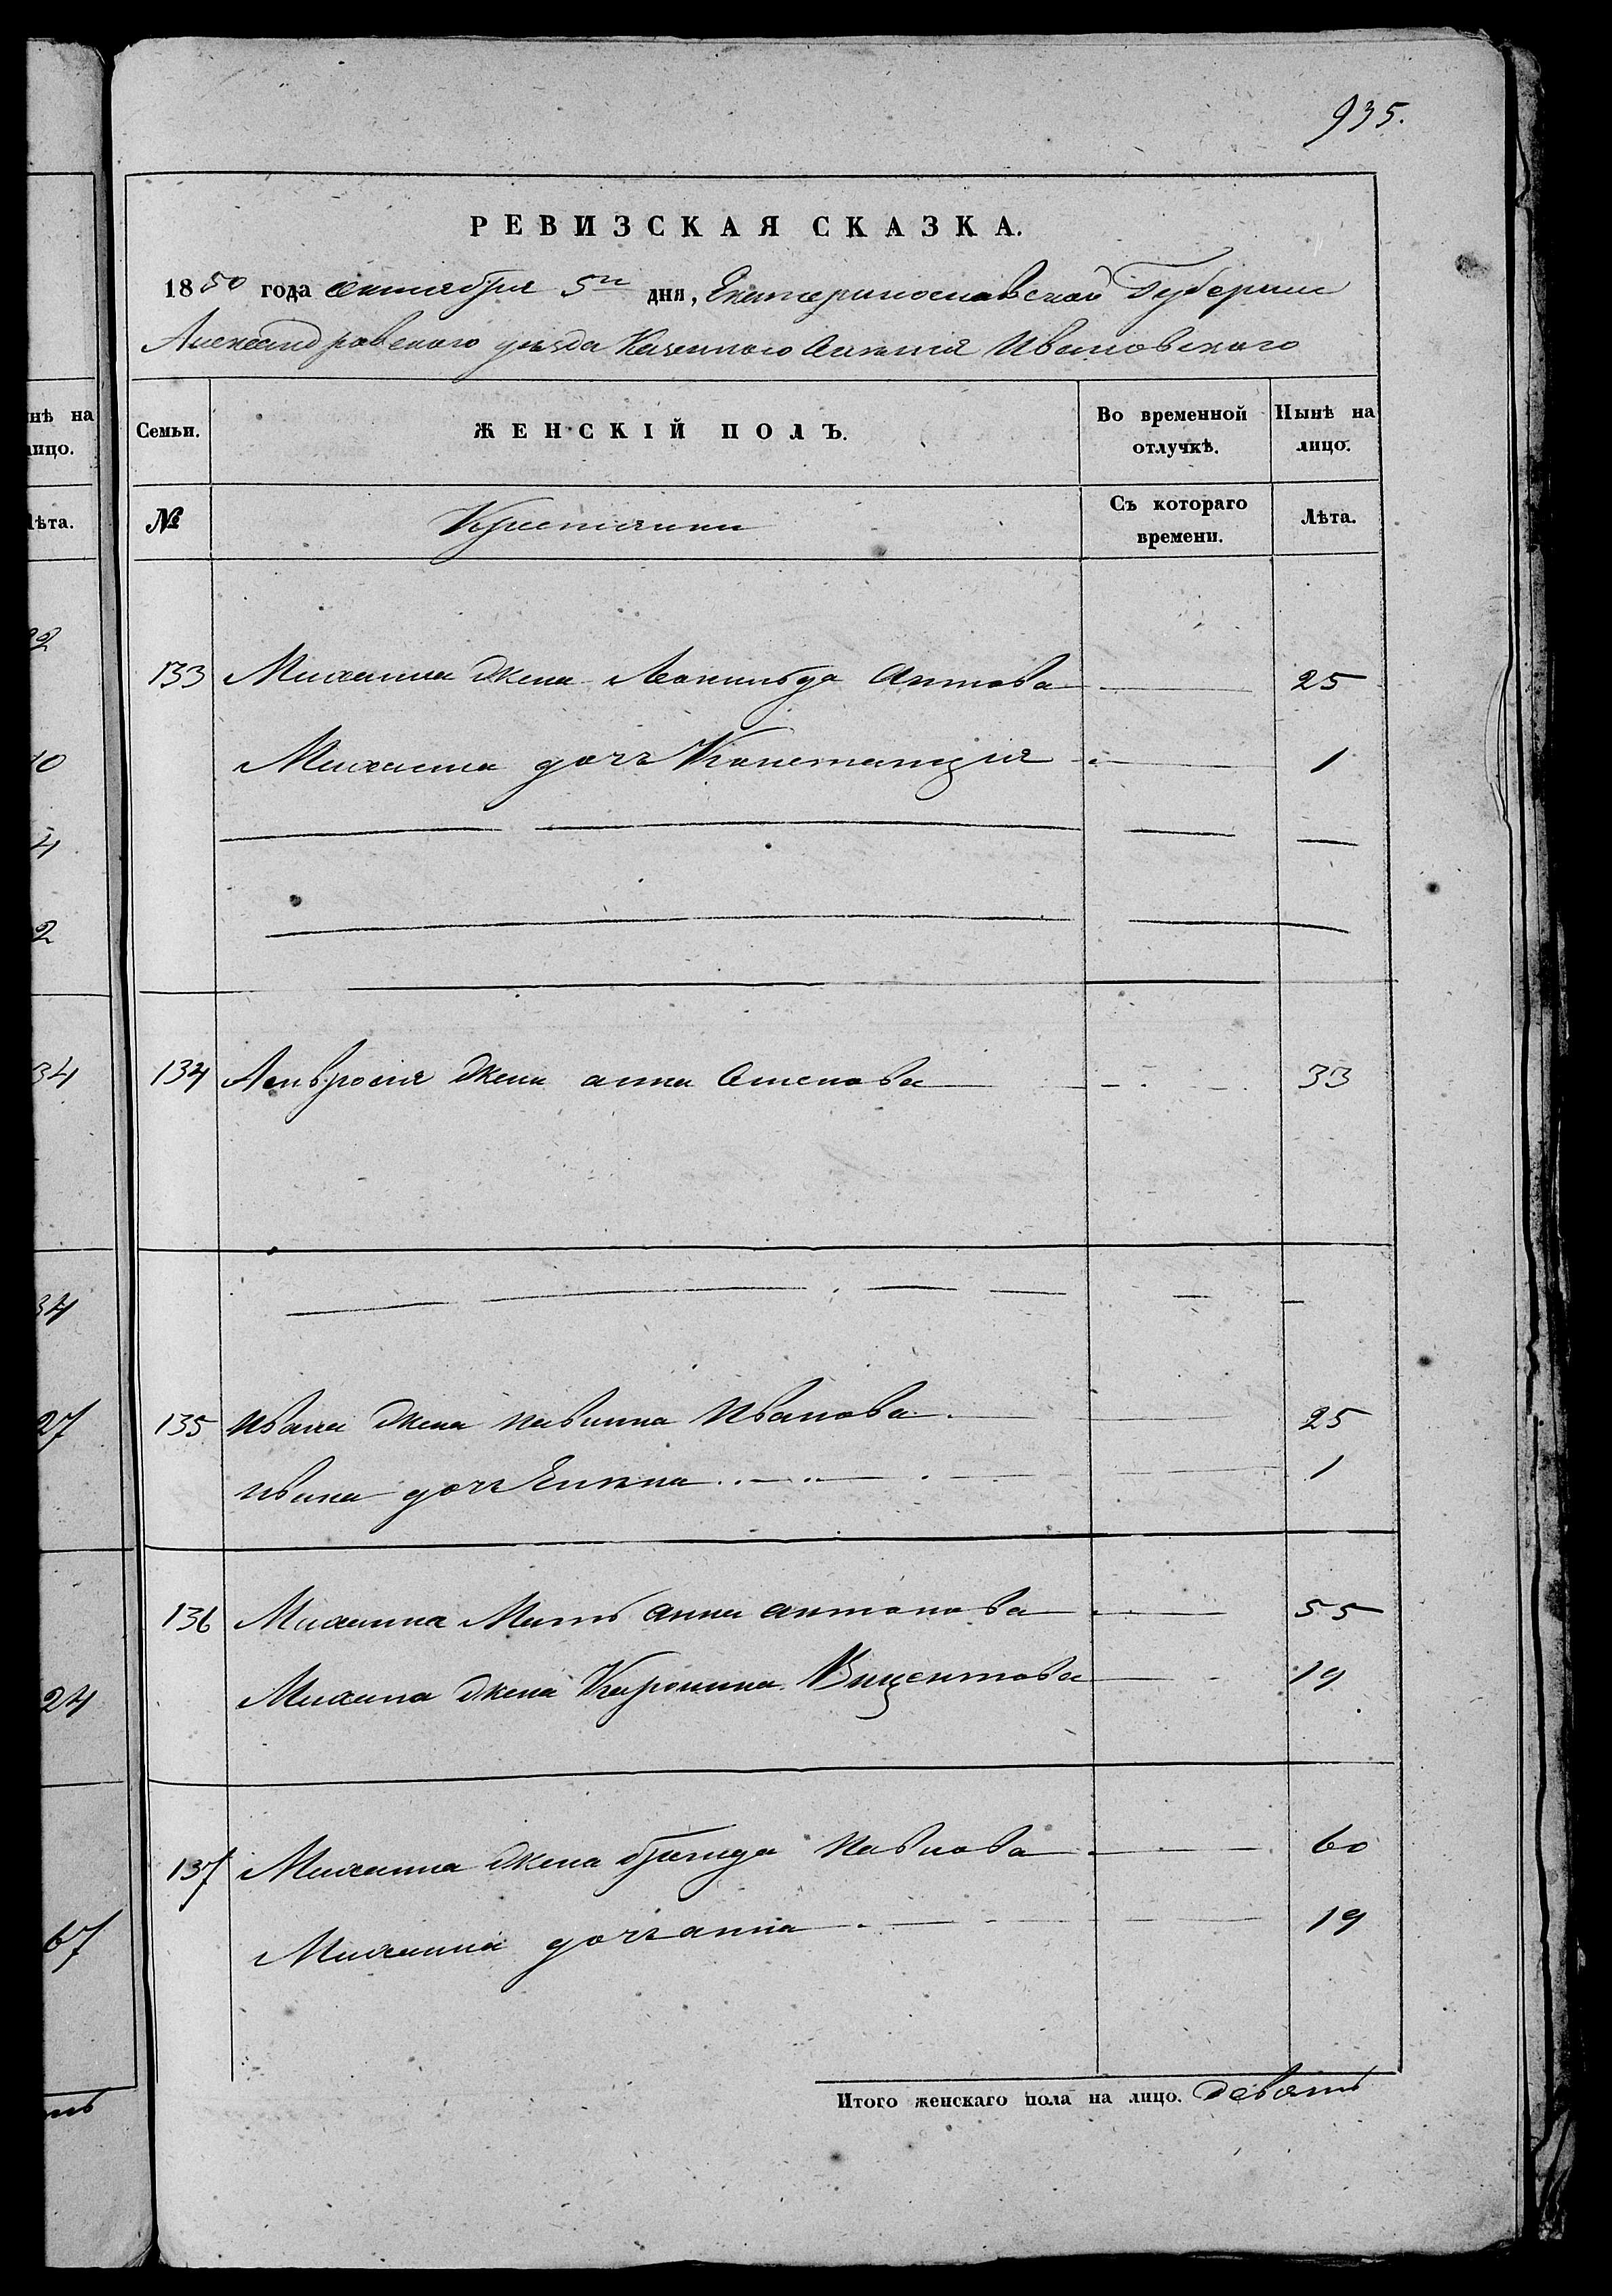 935.
РЕВИЗСКАЯ СКАЗКА.
1850 года октября 5го дня, Екатеринославской Губернии
Александровского уезда Казенного Селенія Ивановского
нѣ на
лицо.
Семьи.
ЖЕНСКІЙ ПОЛЪ.
Во временной
отлучкѣ.
Нынѣ на
лицо.
Лѣта.
№
Крестьянки
Съ котораго
времени.
Лѣта.
133 Михаила жена Антова 25
10 Михаила дочь Констанція 1
4
2
34 134 Амвросія жена анна Степова 33
34
27 135 Ивана жена Павлина Иванова 25
Ивана дочь 1
136 Михаила Мать анна антонова 55
24 Михаила жена Каролина Вицентова 19
137 Михаила жена бригида Павлова 60
67 Михаила дочь анна 19
Итого женскаго пола на лицо. девять